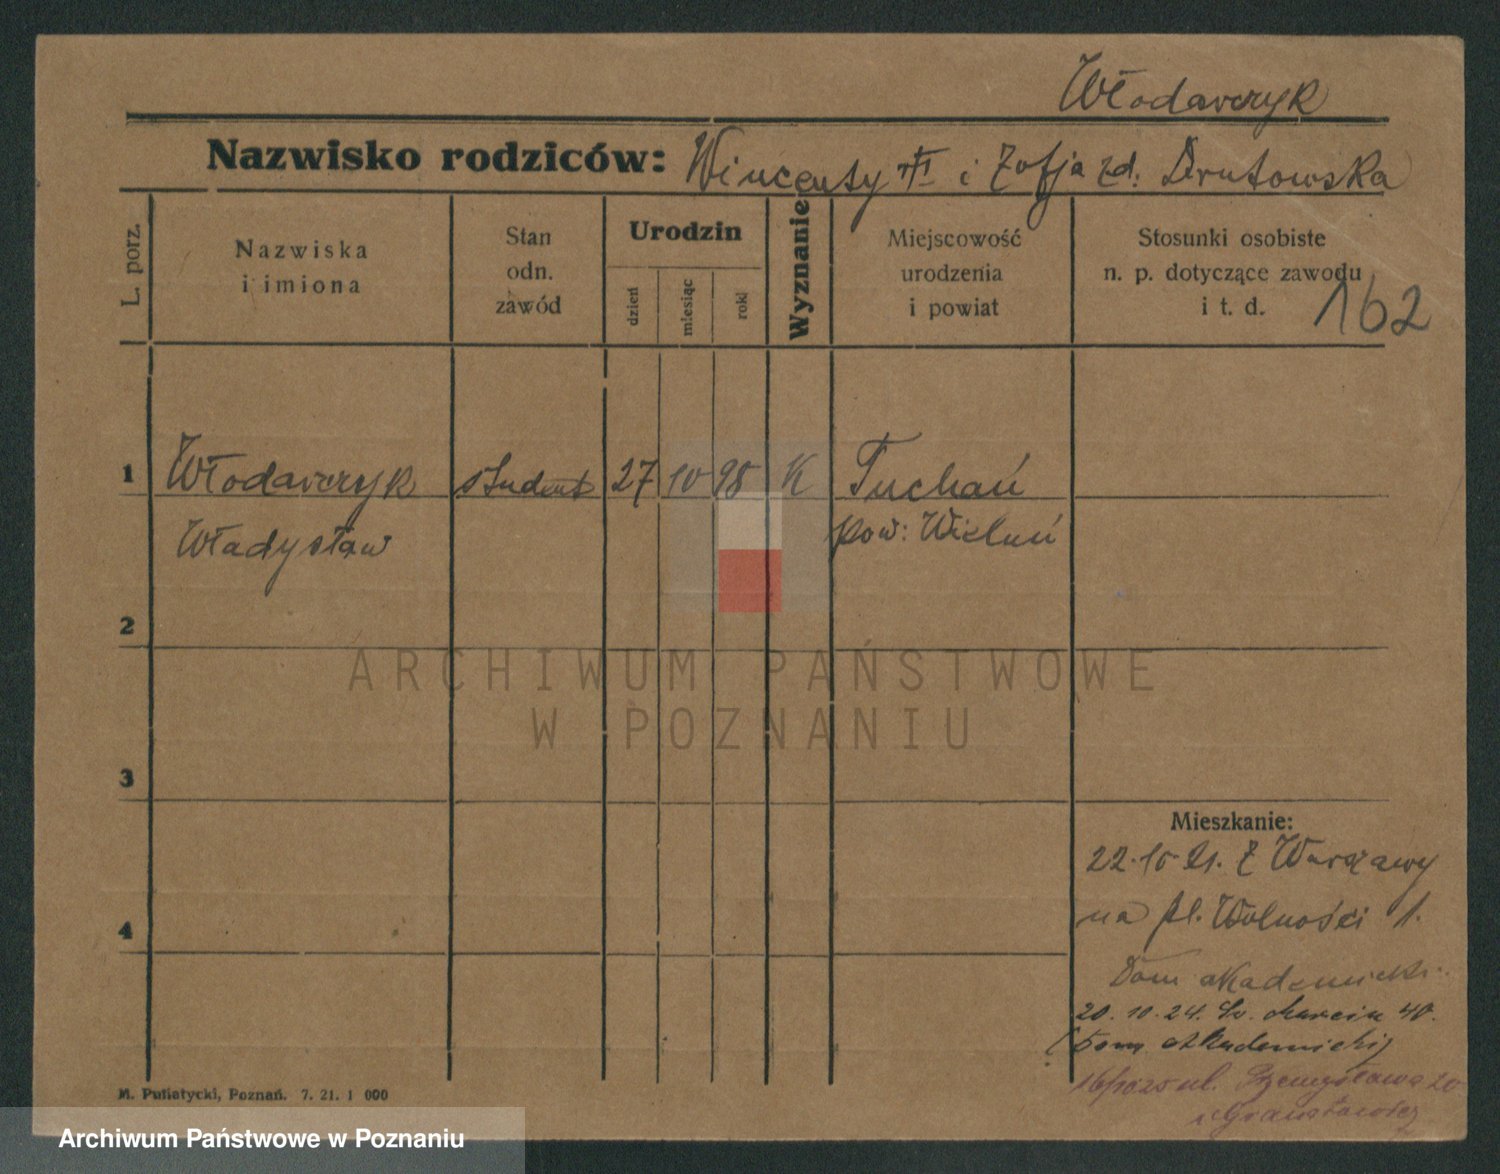 Włodarczyk
Nazwisko rodziców: Wincenty i Zofja zd. Drutowska
L. porz.
Nazwiska
i imiona
Stan
odn.
zawód
Urodzin
dzień
miesiąc
rok
Wyznanie
Miejscowość
urodzenia
i powiat
Stosunki osobiste
n. p. dotyczące zawodu
i t. d.
162
1 Włodarczyk student 27 10 98 K Tuchań
Władysław pow: Wieluń
2
ARCHIWUM PAŃSTWOWE
W POZNANIU
3
Mieszkanie:
22.10.21. z Warszawy
na pl. Wolności 1.
4
Dom akademicki.
20.10.24. Św. Marcin 40.
(Dom Akademicki)
ul. Przemysłowa 20
M. Putiatycki, Poznań. 7. 21. 1 000
Archiwum Państwowe w Poznaniu